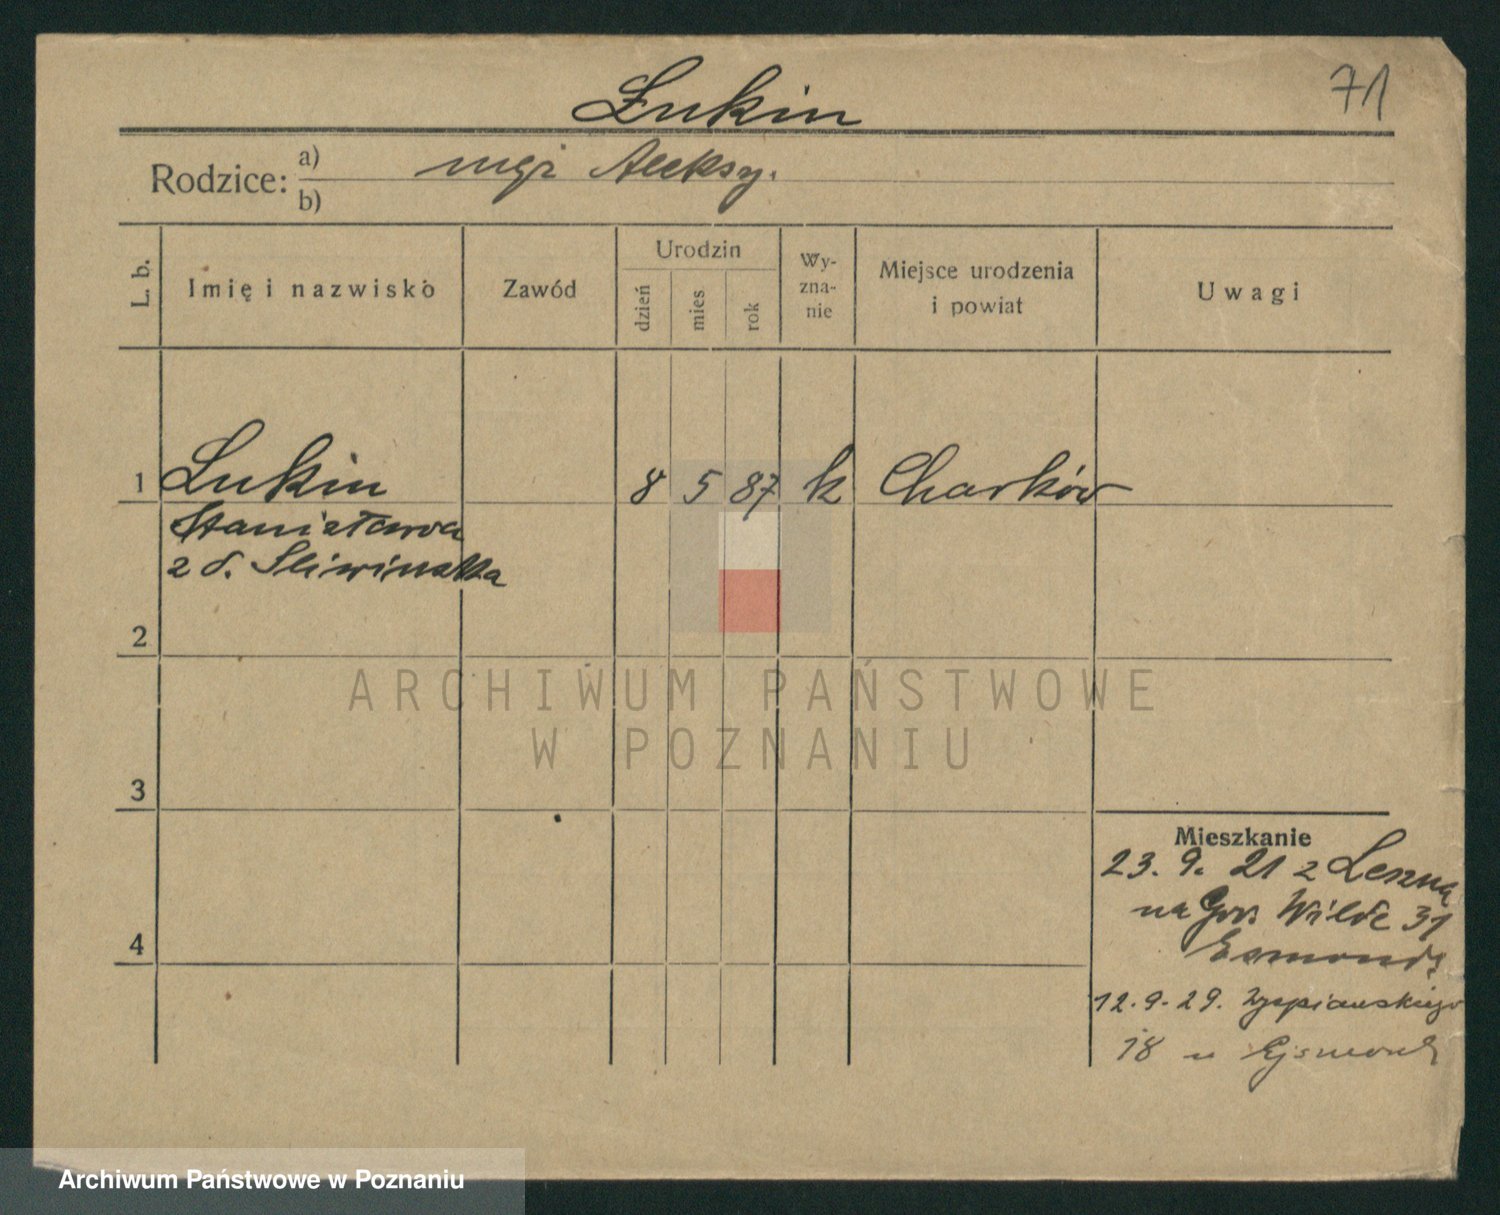 71
Łukin
Rodzice: a) mąż Aleksy.
b)
L. b. Imię i nazwisko Zawód Urodzin dzień mies rok Wy-zna-nie Miejsce urodzenia i powiat Uwagi
1 Lukin 8 5 87 k Charków
Stanisława
z d. Sliwinska
2
3
4
Mieszkanie
23. 9. 21 z Leszna
na Gór. Wilde 31
Esmond
12.9.29. Wyspiańskiego
18 u Ejsmond
ARCHIWUM PAŃSTWOWE
W POZNANIU
Archiwum Państwowe w Poznaniu